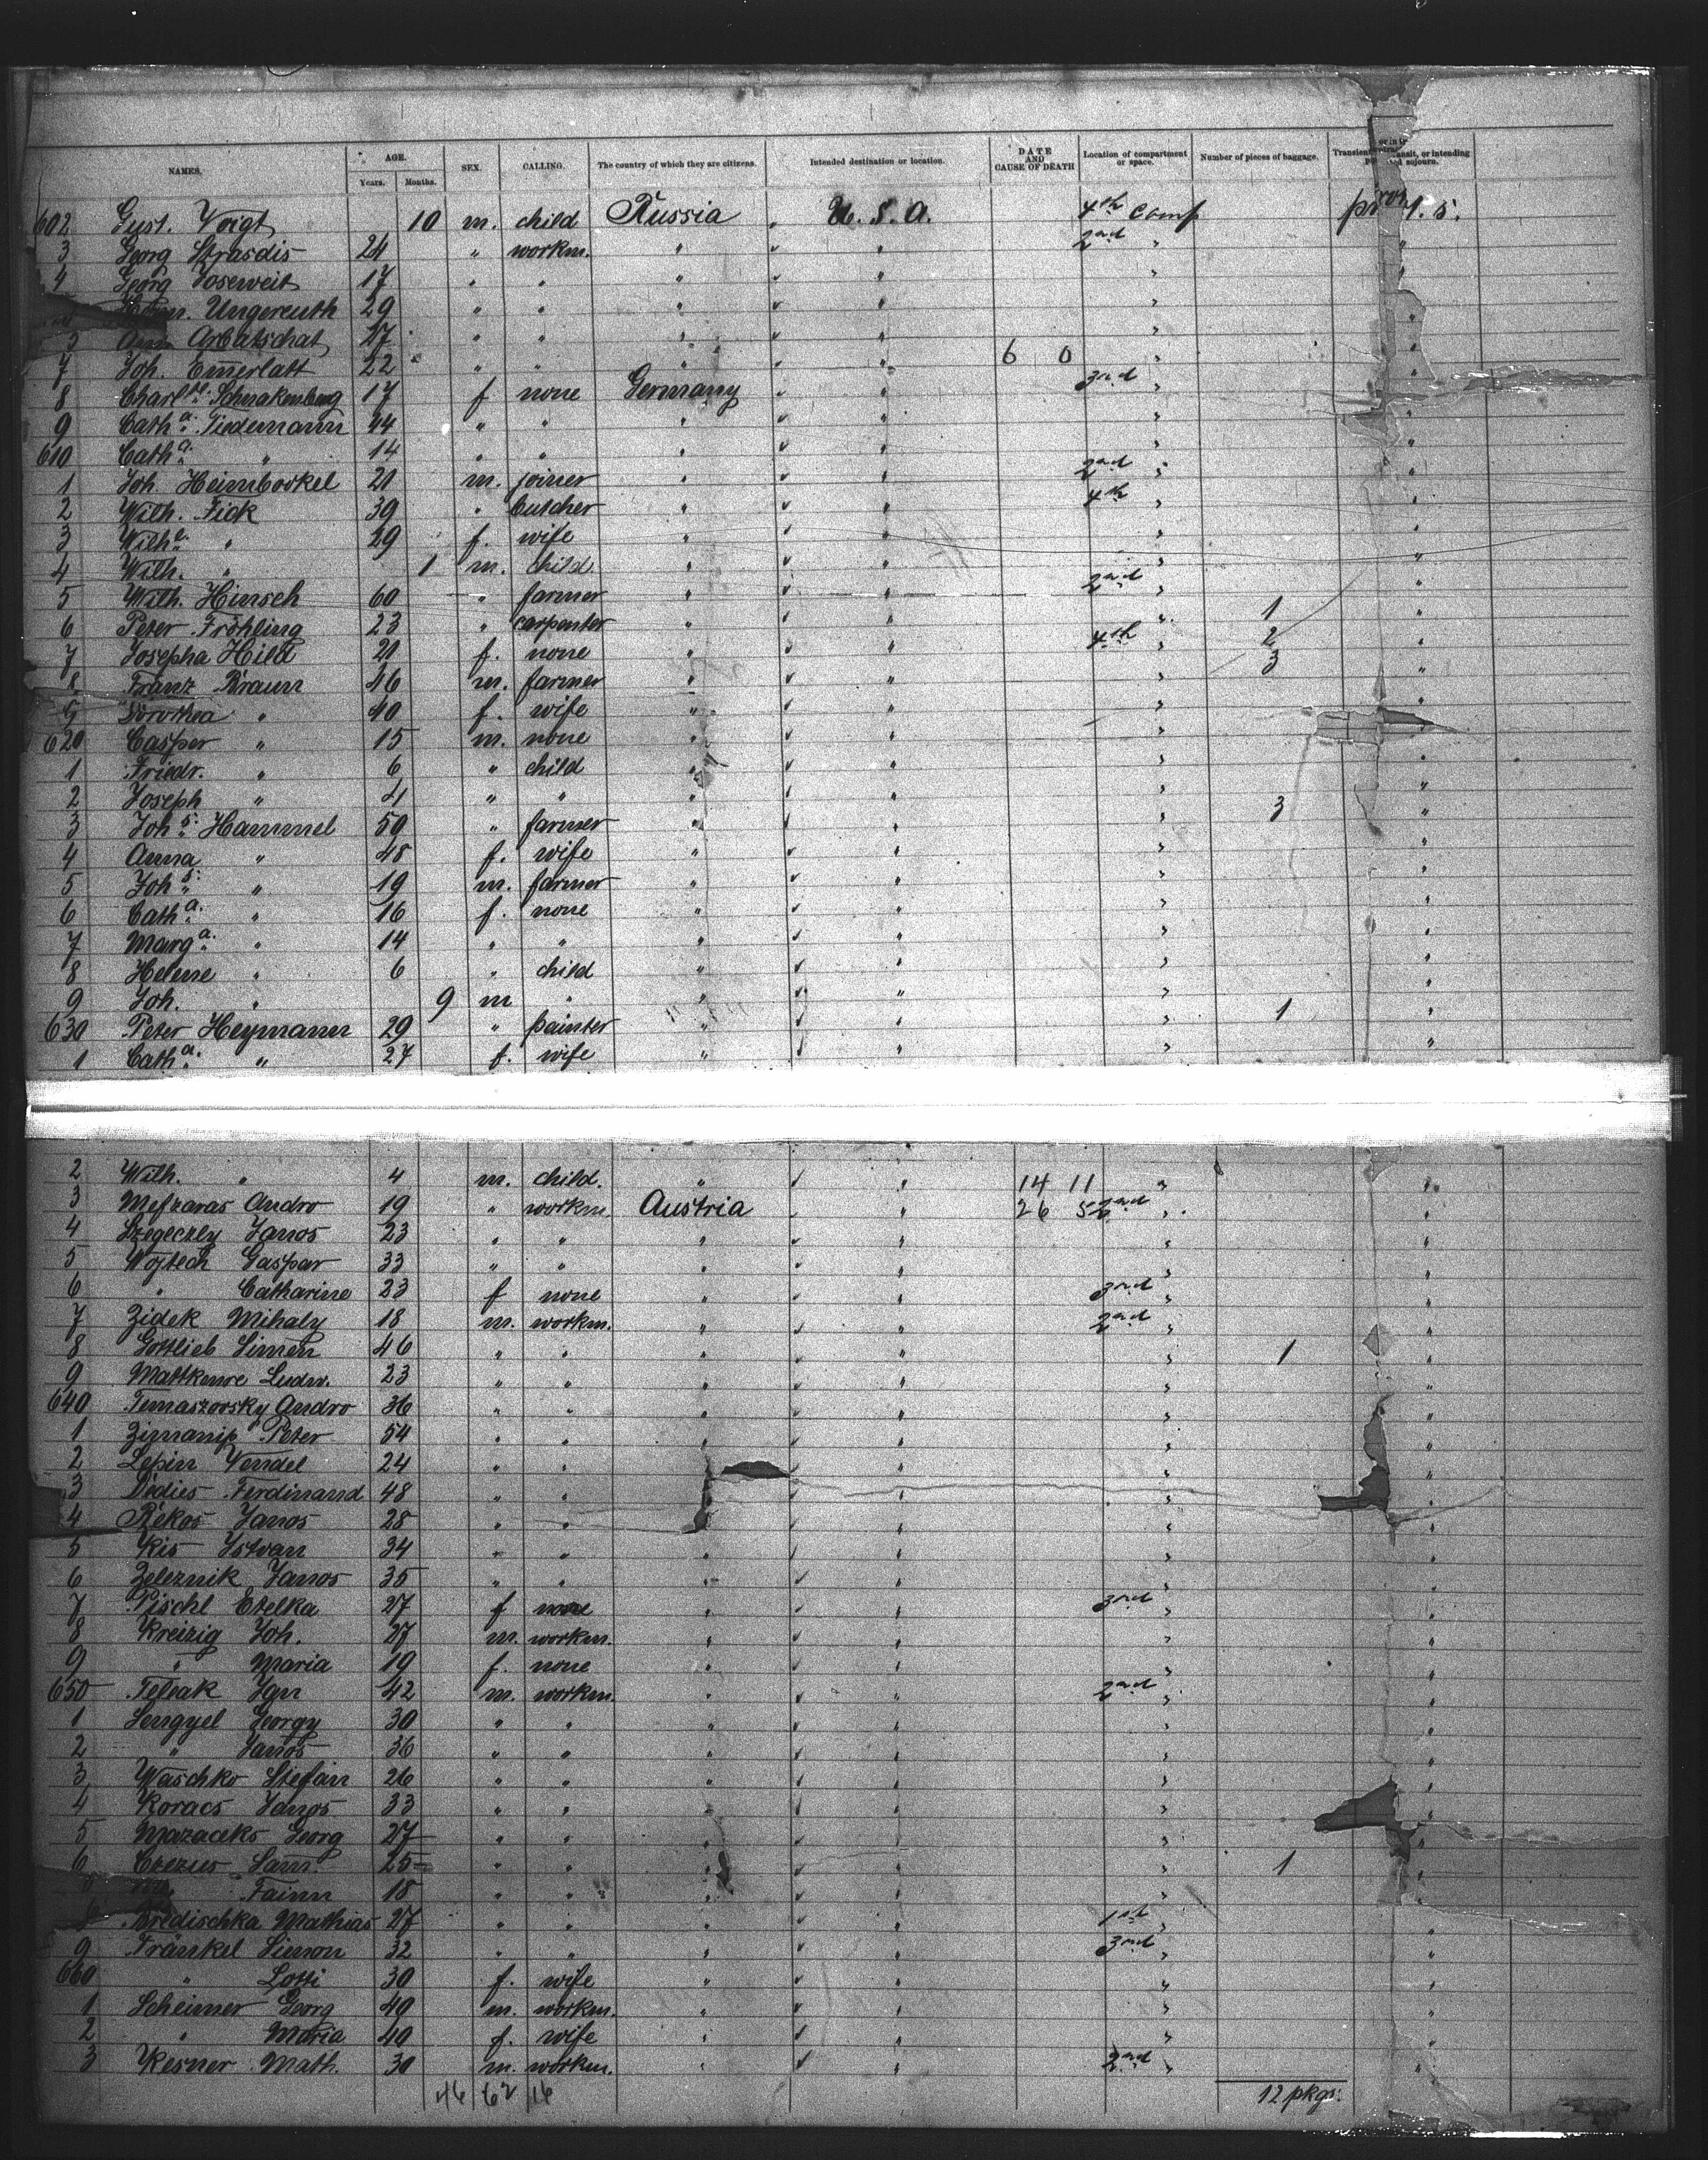 NAMES. AGE. SEX. CALLING. The country of which they are citizens. Intended destination or location. DATE AND CAUSE OF DEATH Location of compartment or space. Number of pieces of baggage. Transient, transit, or intending sojourn.
Years. Months.
602 Gust. Voigt 10 m. child Russia " U. S. A. 4th Comp
3 Georg Strasdis 24 " workm. " " 2nd " "
4 Georg Joseweit 17 " " " " " "
Ungereuth 29 " " " " " "
Arbatschat 27 " " " " " "
7 Joh. Em̄erlatt 22 " " " " 6 0 " "
8 Charl.tte Schnakenberg 17 f none Germany " 3rd " "
9 Cath.a Tiedemann 44 " " " " " "
610 Cath.a " 14 " " " " " "
1 Joh. Heimbockel 21 m. joiner " " 2nd " "
2 Wilh. Fick 39 " butcher " " 4th " "
3 Wilh.e " 29 f. wife " " " "
4 Wilh. " 1 m. child. " " " "
5 Wilh. Hinsch 60 " farmer " " 2nd " 1 "
6 Peter Fröhling 23 " carpenter " " " 2 "
7 Josepha Hild 21 f. none " " 4th " 3 "
8 Franz Braun 46 m. farmer " " " "
9 Dorothea " 40 f. wife " " " "
620 Casper " 15 m. none " " " "
1 Friedr. " 6 " child " " " "
2 Joseph " 4 " " " " " "
3 Joh.s Hammel 50 " farmer " " " 3 "
4 Anna " 48 f. wife " " " "
5 Joh.s " 19 m. farmer " " " "
6 Cath.a " 16 f. none " " " "
7 Marg.a " 14 " " " " " "
8 Helene " 6 " child " " " "
9 Joh. " 9 m " " " " "
630 Peter Heymann 29 " painter " " " 1 "
1 Cath.a " 27 f. wife " " " "
2 Wilh. " 4 m. child. " " 14 11 " "
3 Andro 19 " workm. Austria " 26 5 2nd " "
4 Szegeczly Janos 23 " " " " " "
5 Wojtech Gaspar 33 " " " " " "
6 " Catharine 23 f none " " 3rd " "
7 Zidek Mihaly 18 m. workm. " " 2nd " "
8 Gottlieb Simen 46 " " " " " 1 "
9 Ludw. 23 " " " " " "
640 Temaszovsky Andro 36 " " " " " "
1 Peter 54 " " " " " "
2 Lepin Vendel 24 " " " " " "
3 Dedies Ferdinand 48 " " " " " "
4 Rekos Janos 28 " " " " " "
5 Kis Istvan 34 " " " " " "
6 Zeleznik Janos 35 " " " " " "
7 Pischl Etelka 27 f none " " 3rd " "
8 Kreizig Joh. 27 m. workm. " " " "
9 " Maria 19 f. none " " " "
650 Jan 42 m. workm. " " 2nd " "
1 Lengyel Georgy 30 " " " " " "
2 " Janos 36 " " " " " "
3 Waschko Stefan 26 " " " " " "
4 Kovacs Janos 33 " " " " " "
5 Mazaceks Georg 27 " " " " " "
6 25 " " " " " 1 "
18 " " " " " "
Mathias 27 " " " " 1st " "
9 Fränkel Simon 32 " " " " 3rd " "
660 " Lotti 30 f. wife " " " "
1 Scheimer Georg 40 m. workm. " " " "
2 " Maria 40 f. wife " " " "
3 Kesner Math. 30 m. workm. " " 2nd " "
46 62 16 12 pkgs.